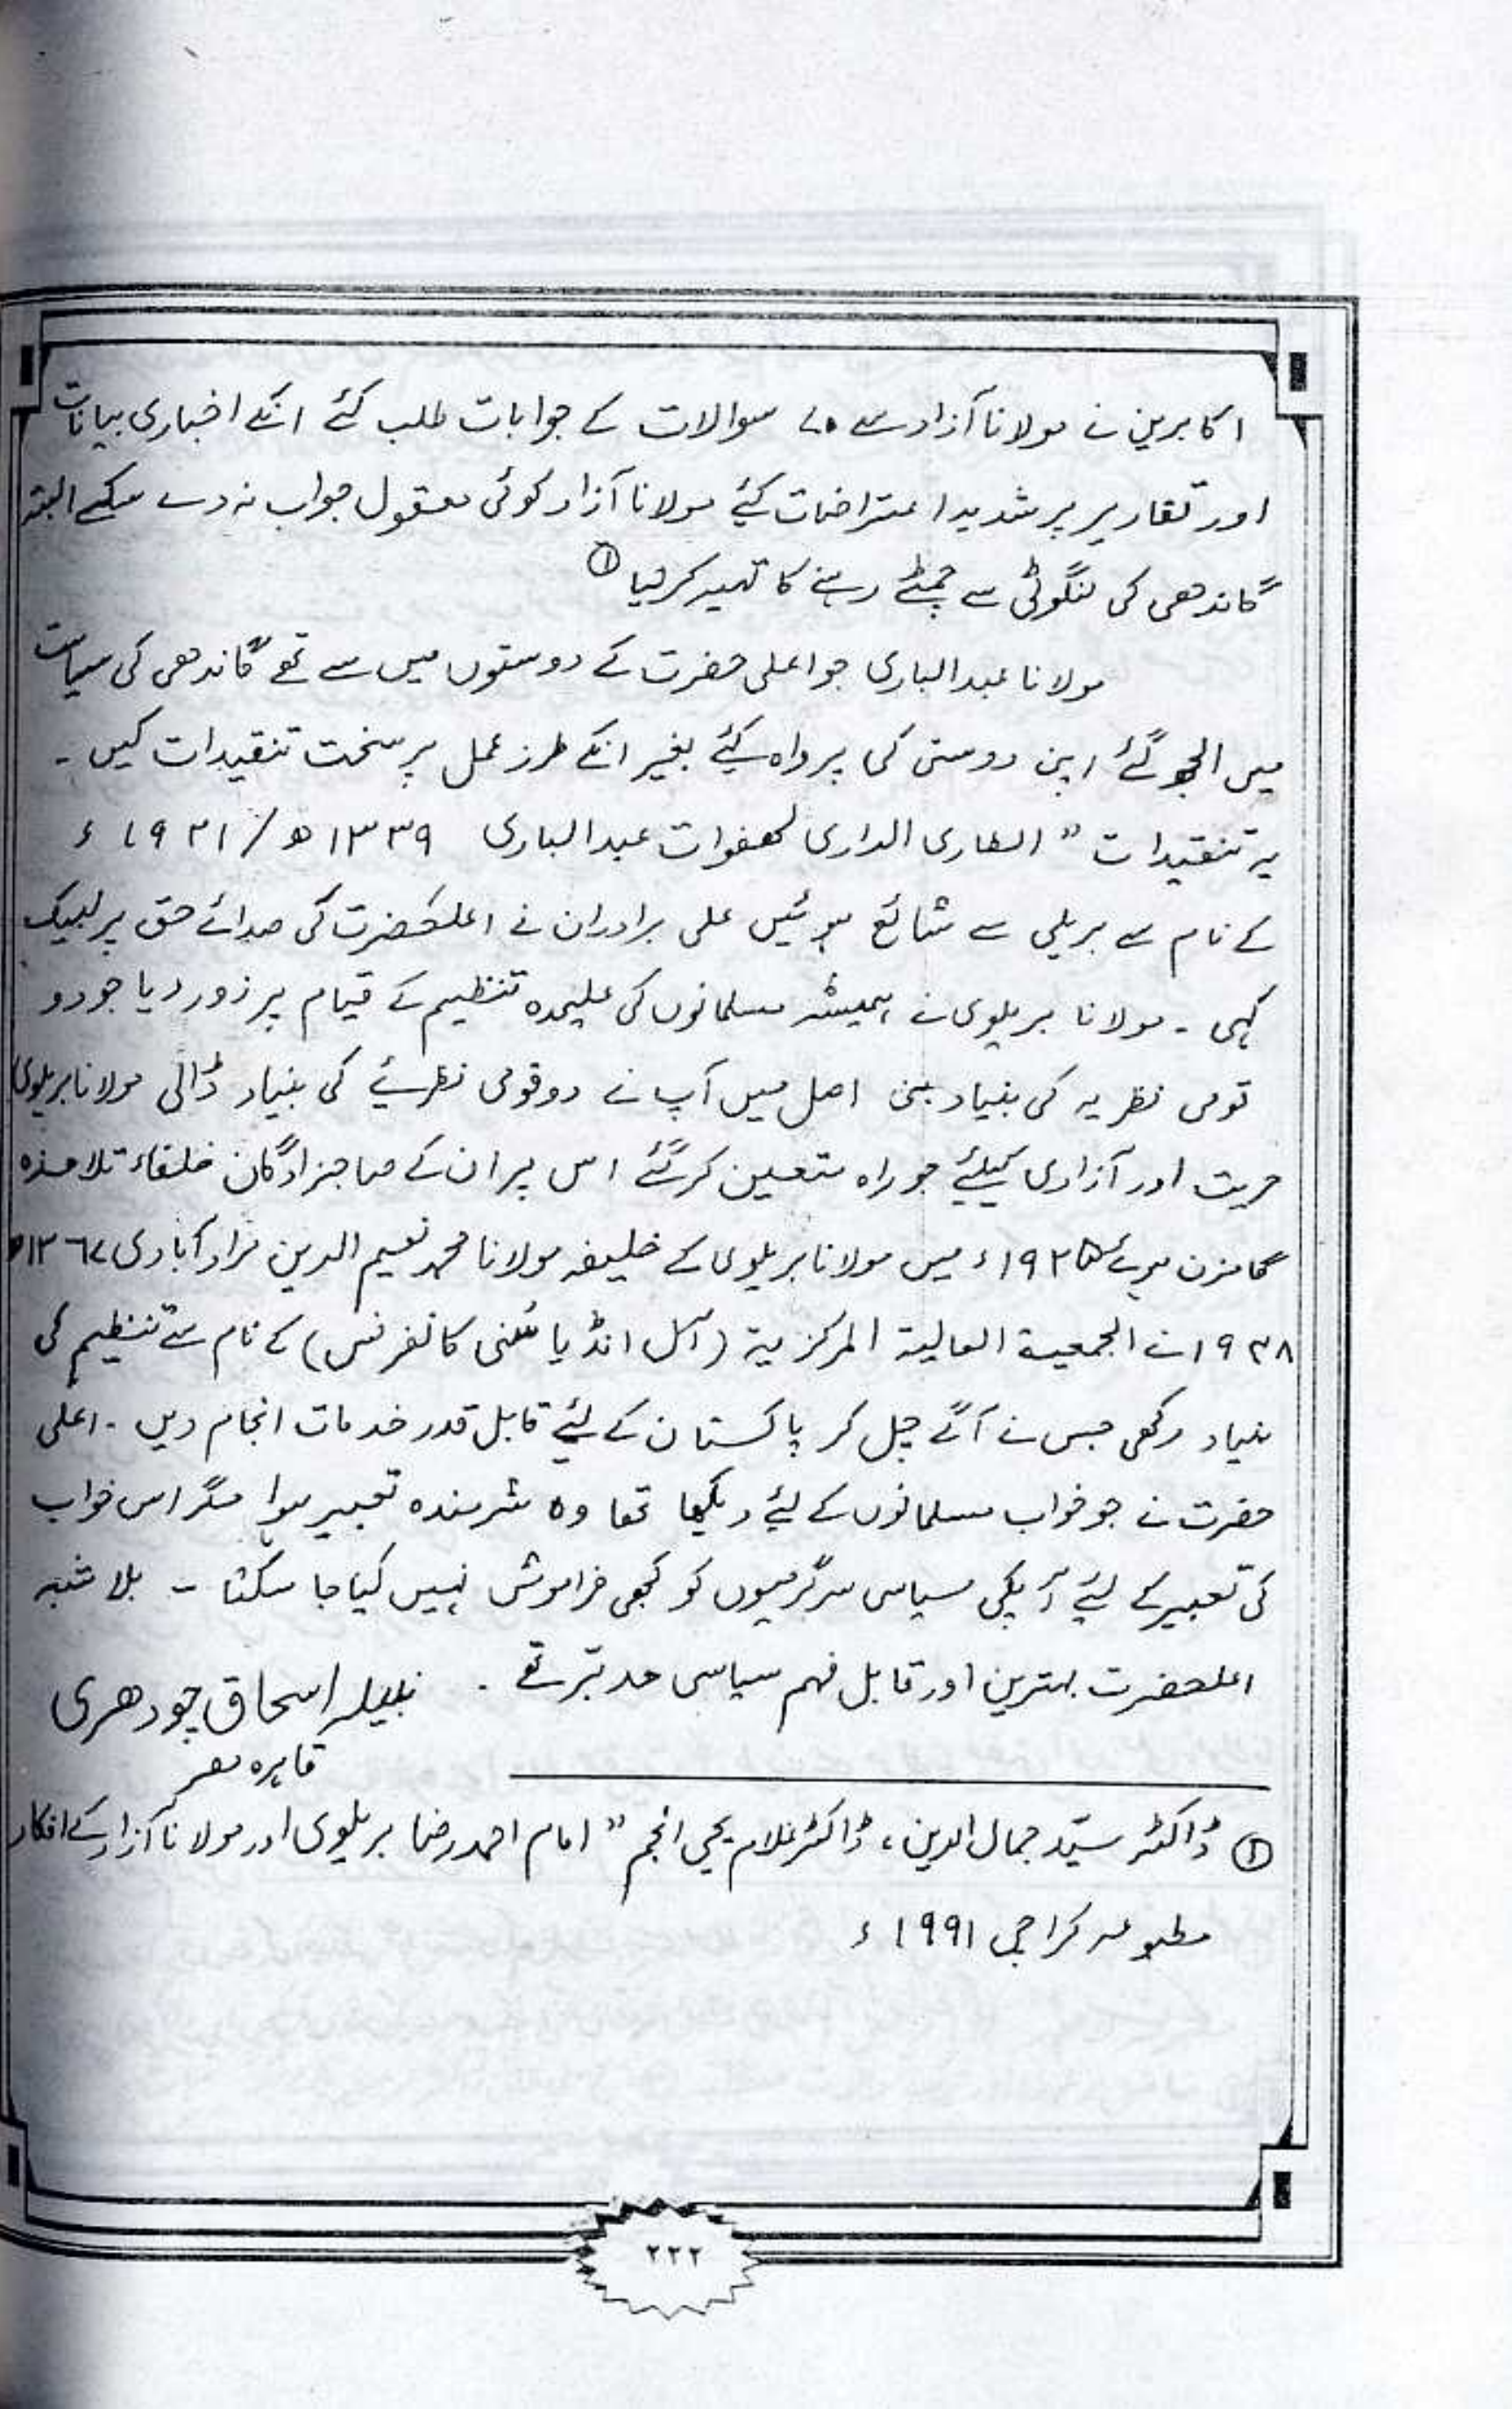 اکابرین نے مولانا آزاد سے ۷۰ سوالات کے جوابات طلب کئے انکے اخباری بیانات
اور تقاریر پر شدید اعتراضات کیئے مولانا آزاد کوئی معقول جواب نہ دے سکے البتہ
گاندھی کی لنگوٹی سے چمٹے رہنے کا تہیہ کرلیا ①
مولانا عبدالباری جو اعلی حضرت کے دوستوں میں سے تھے گاندھی کی سیاست
میں الجھ گئے اپنی دوستی کی پرواہ کیئے بغیر انکے طرز عمل پر سخت تنقیدات کیں ۔
یہ تنقیدات " الطاری الداری لھفوات عبدالباری ۱۳۳۹ھ / ۱۹۲۱ء
کے نام سے بریلی سے شائع ہوئیں علی برادران نے اعلحضرت کی صدائے حق پر لبیک
کہی ۔ مولانا بریلوی نے ہمیشہ مسلمانوں کی علیحدہ تنظیم کے قیام پر زور دیا جو دو
قومی نظریہ کی بنیاد بنی اصل میں آپ نے دو قومی نظرئیے کی بنیاد ڈالی مولانا بریلوی
حریت اور آزادی کیلئے جو راہ متعین کر گئے اس پر ان کے صاجزادگان خلفاء تلامذہ
گامزن ہوئے ۱۹۲۵ء میں مولانا بریلوی کے خلیفہ مولانا محمد نعیم الدین مراد آبادی ۱۳۶۷ھ
۱۹۴۸ نے الجمعیۃ العالیۃ المرکزیۃ (آل انڈیا سُنی کانفرنس) کے نام سے تنظیم کی
بنیاد رکھی جس نے آگے چل کر پاکستان کے لئے قابل قدر خدمات انجام دیں ۔ اعلی
حضرت نے جو خواب مسلمانوں کے لیئے دیکھا تھا وہ شرمندہ تعبیر ہوا مگر اس خواب
کی تعبیر کے لیئے آپکی سیاسی سرگرمیوں کو کبھی فراموش نہیں کیا جا سکتا ۔ بلا شبہ
اعلحضرت بہترین اور قابل فہم سیاسی مدبّر تھے ۔ نبیلہ اسحاق چودھری
قاہرہ مصر
① ڈاکٹر سیّد جمال الدین، ڈاکٹر غلام یحیی انجم " امام احمد رضا بریلوی اور مولانا آزاد کے افکار
مطبوعہ کراچی ۱۹۹۱ء
۲۲۲